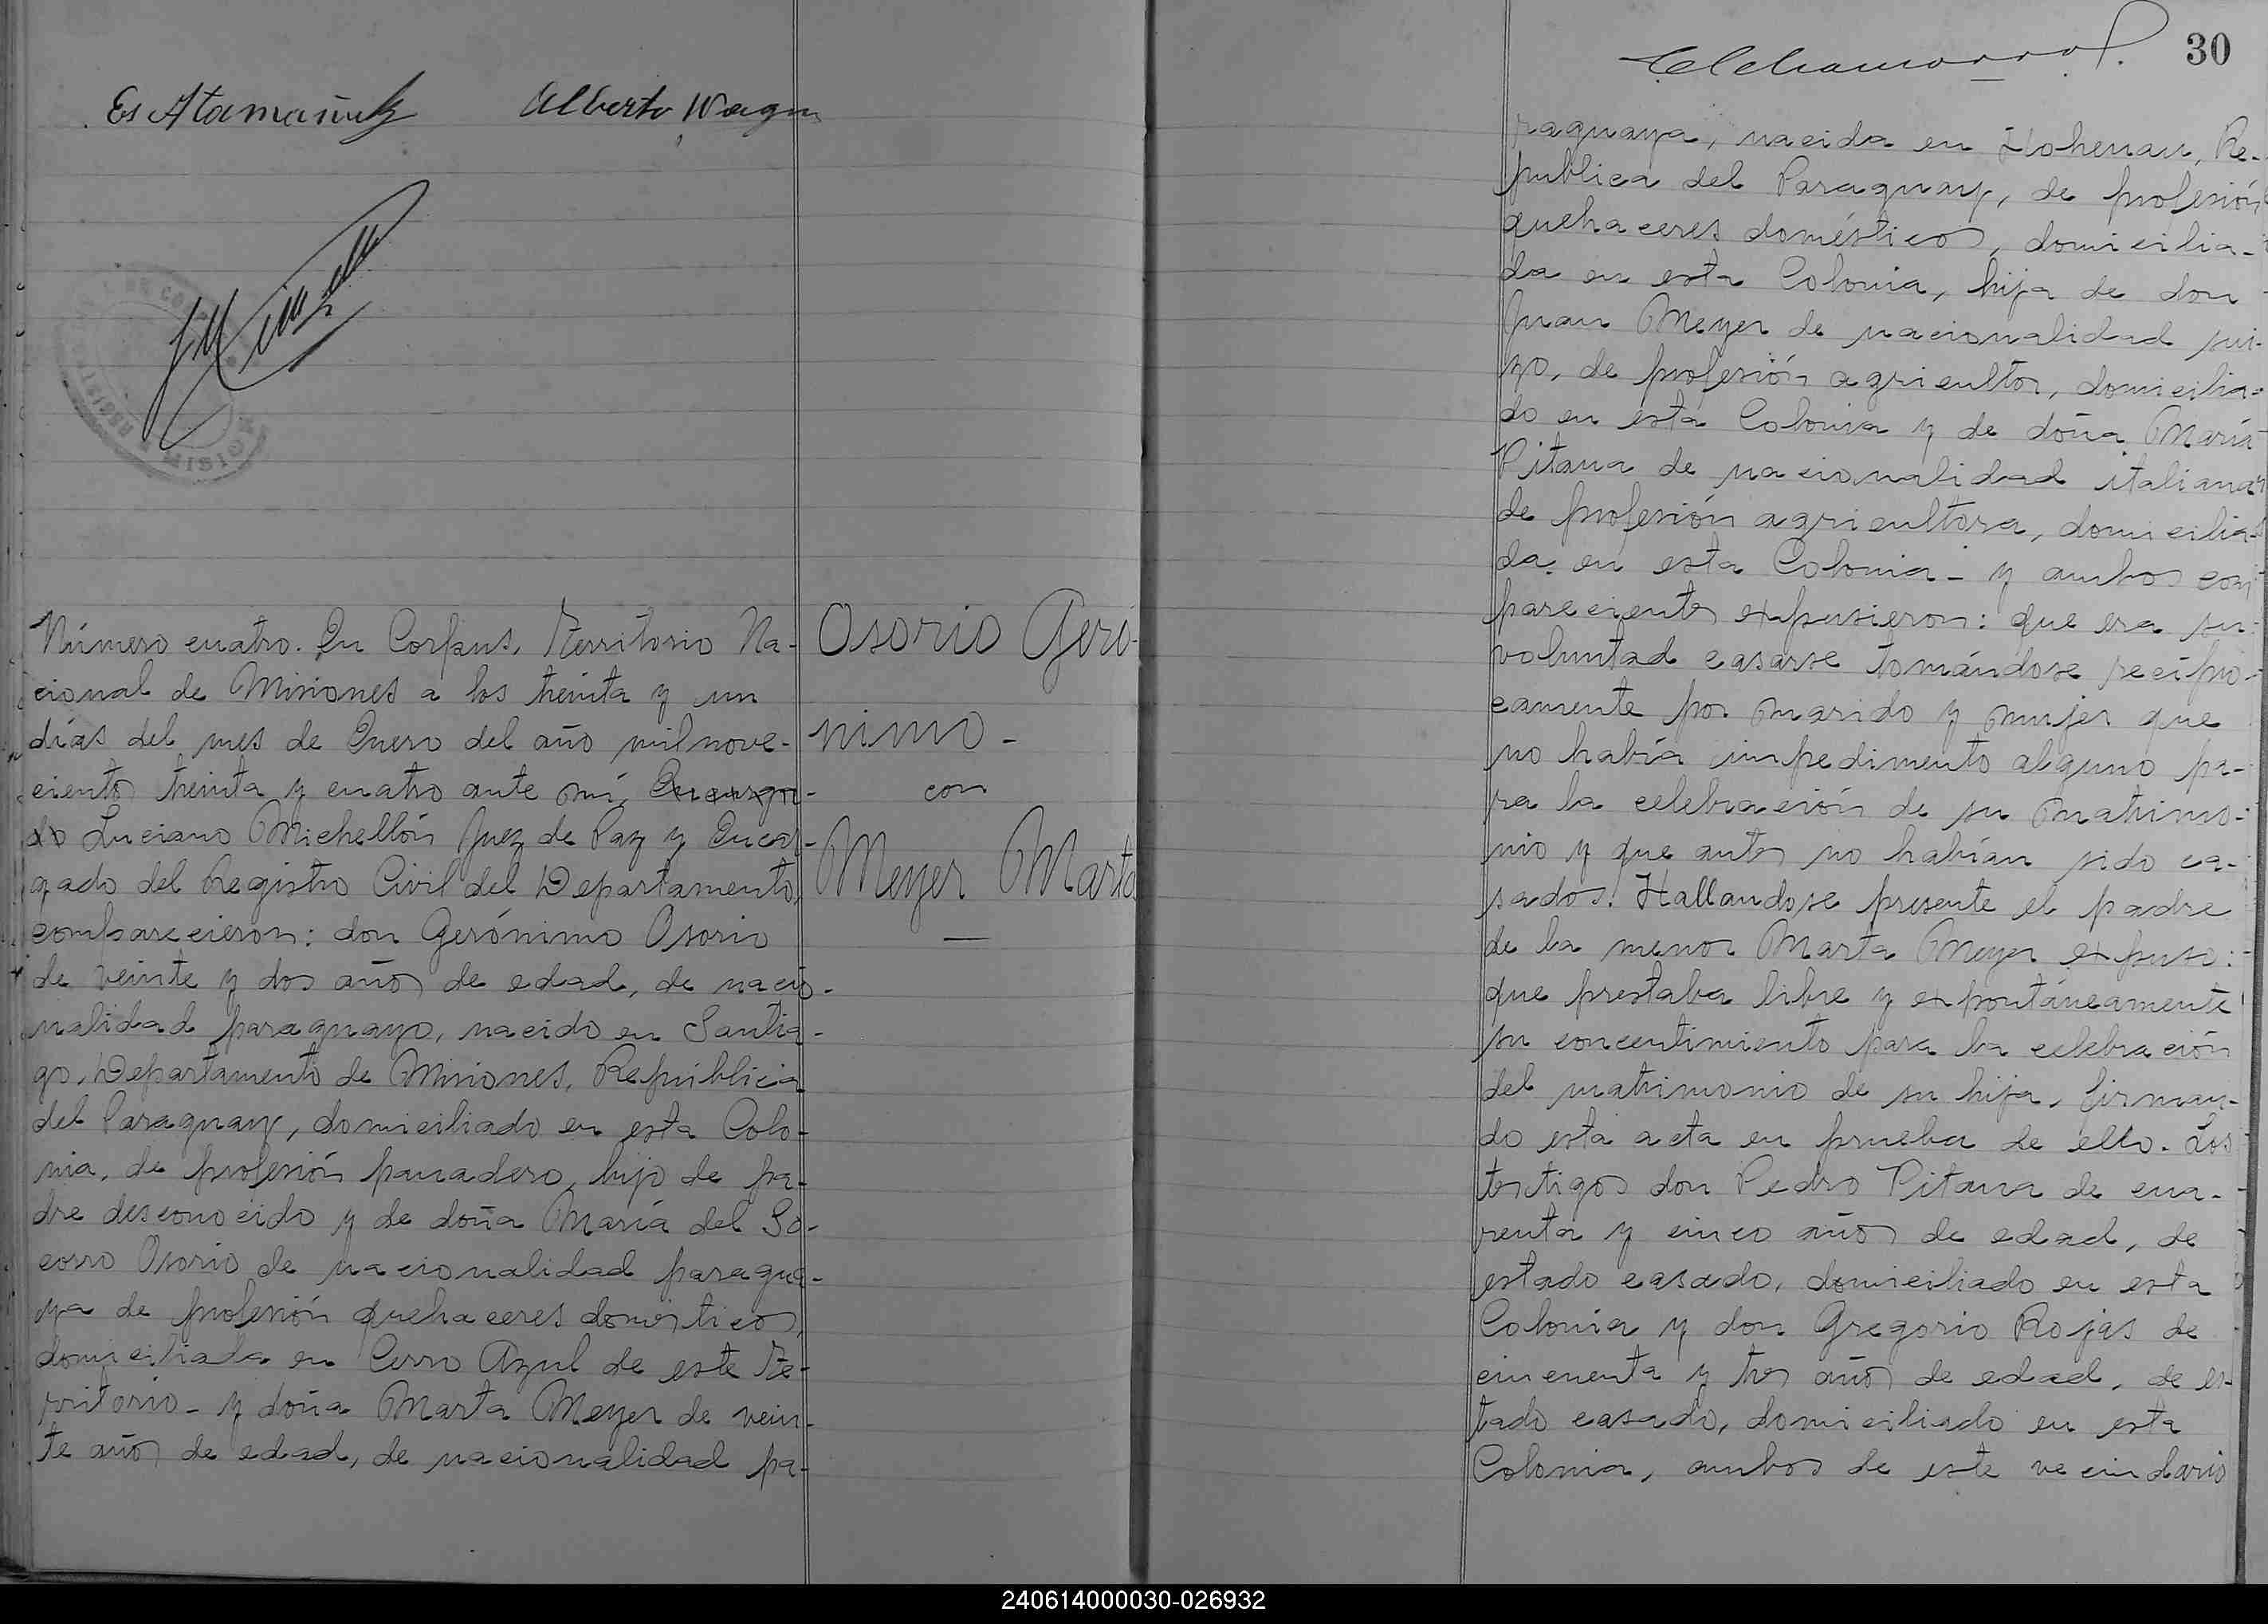 Alberto Wagn
Número cuatro. En Corpus, Territorio Na-
cional de Misiones a los treinta y un
días del mes de Enero del año mil nove-
cientos treinta y cuatro ante mí, Encarga-
do Luciano Michellón Juez de Paz y Encar-
gado del Registro Civil del Departamento,
comparecieron: don Gerónimo Osorio
de veinte y dos años de edad, de nacio-
nalidad paraguayo, nacido en Santia-
go, Departamento de Misiones, República
del Paraguay, domiciliado en esta Colo-
nia, de profesión panadero, hijo de pa-
dre desconocido y de doña María del So-
corro Osorio de nacionalidad paragua-
ya de profesión quehaceres domésticos,
domiciliada en Cerro Azul de este Te-
rritorio - y doña Marta Meyer de vein-
te años de edad, de nacionalidad pa-
Osorio Geró-
nimo -
con
Meyer Marta
30
raguaya, nacida en Hohenau, Re-
publica del Paraguay, de profesión
quehaceres domésticos, domicilia-
da en esta Colonia, hija de don
Juan Meyer de nacionalidad sui-
zo, de profesión agricultor, domicilia-
do en esta Colonia y de doña María
Pitana de nacionalidad italiana
de profesión agricultora, domicilia-
da en esta Colonia - y ambos com
parecientes expusieron: que era su
voluntad casarse tomándose recípro-
camente por marido y mujer que
no había impedimento alguno pa-
ra la celebración de su matrimo-
nio y que antes no habían sido ca-
sados. Hallandose presente el padre
de la menor Marta Meyer expuso:
que prestaba libre y expontáneamente
su concentimiento para la celebración
del matrimonio de su hija, firman-
do esta acta en prueba de ello. Los
testigos don Pedro Pitana de cua-
renta y cinco años de edad, de
estado casado, domiciliado en esta
Colonia y don Gregorio Rojas de
cincuenta y tres años de edad, de es-
tado casado, domiciliado en esta
Colonia, ambos de este vecindario
240614000030-026932